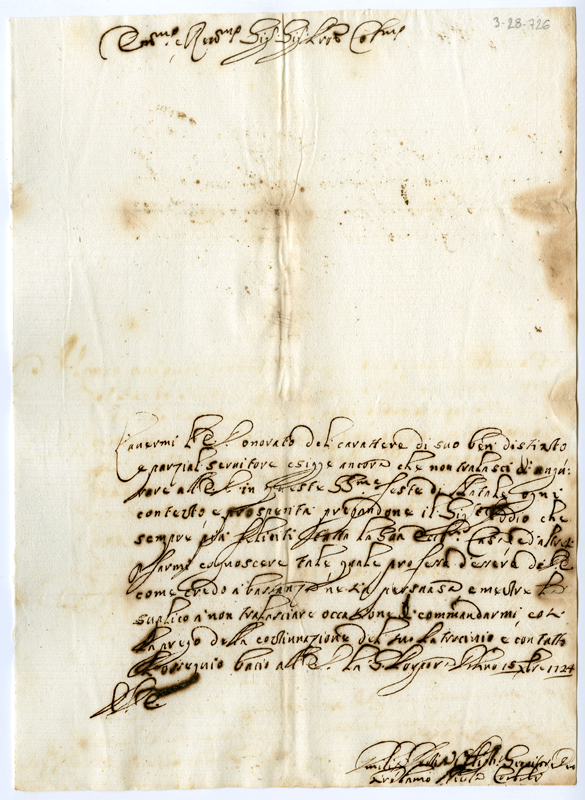 3-28-726
Em.mo e Rev.mo Sig.r Sig.r Pron Col.mo
L'avermi V.E. onorato del carattere di suo ben distinto
e parzial servitore esigge ancora che non tralasci di augu:
rare all'E.V. in queste SS.me feste di Natale ogni
contento, e prosperità pregandone il Sig.r Iddio che
sempre più feliciti tutta la Sua Ecc.ma Casa, e d'altra
farmi conoscere tale quale professo d'essere di V.E.
come credo a bastanza ne sia persuasa e mentre la
suplico a non tralasciare occasione di commandarmi, e
la prego della continuazione del suo Patrocinio e con tutto
l'ossequio bacio all'E.V. la 15 Xbre 1724
Di V.E.
Servitore
Girolamo